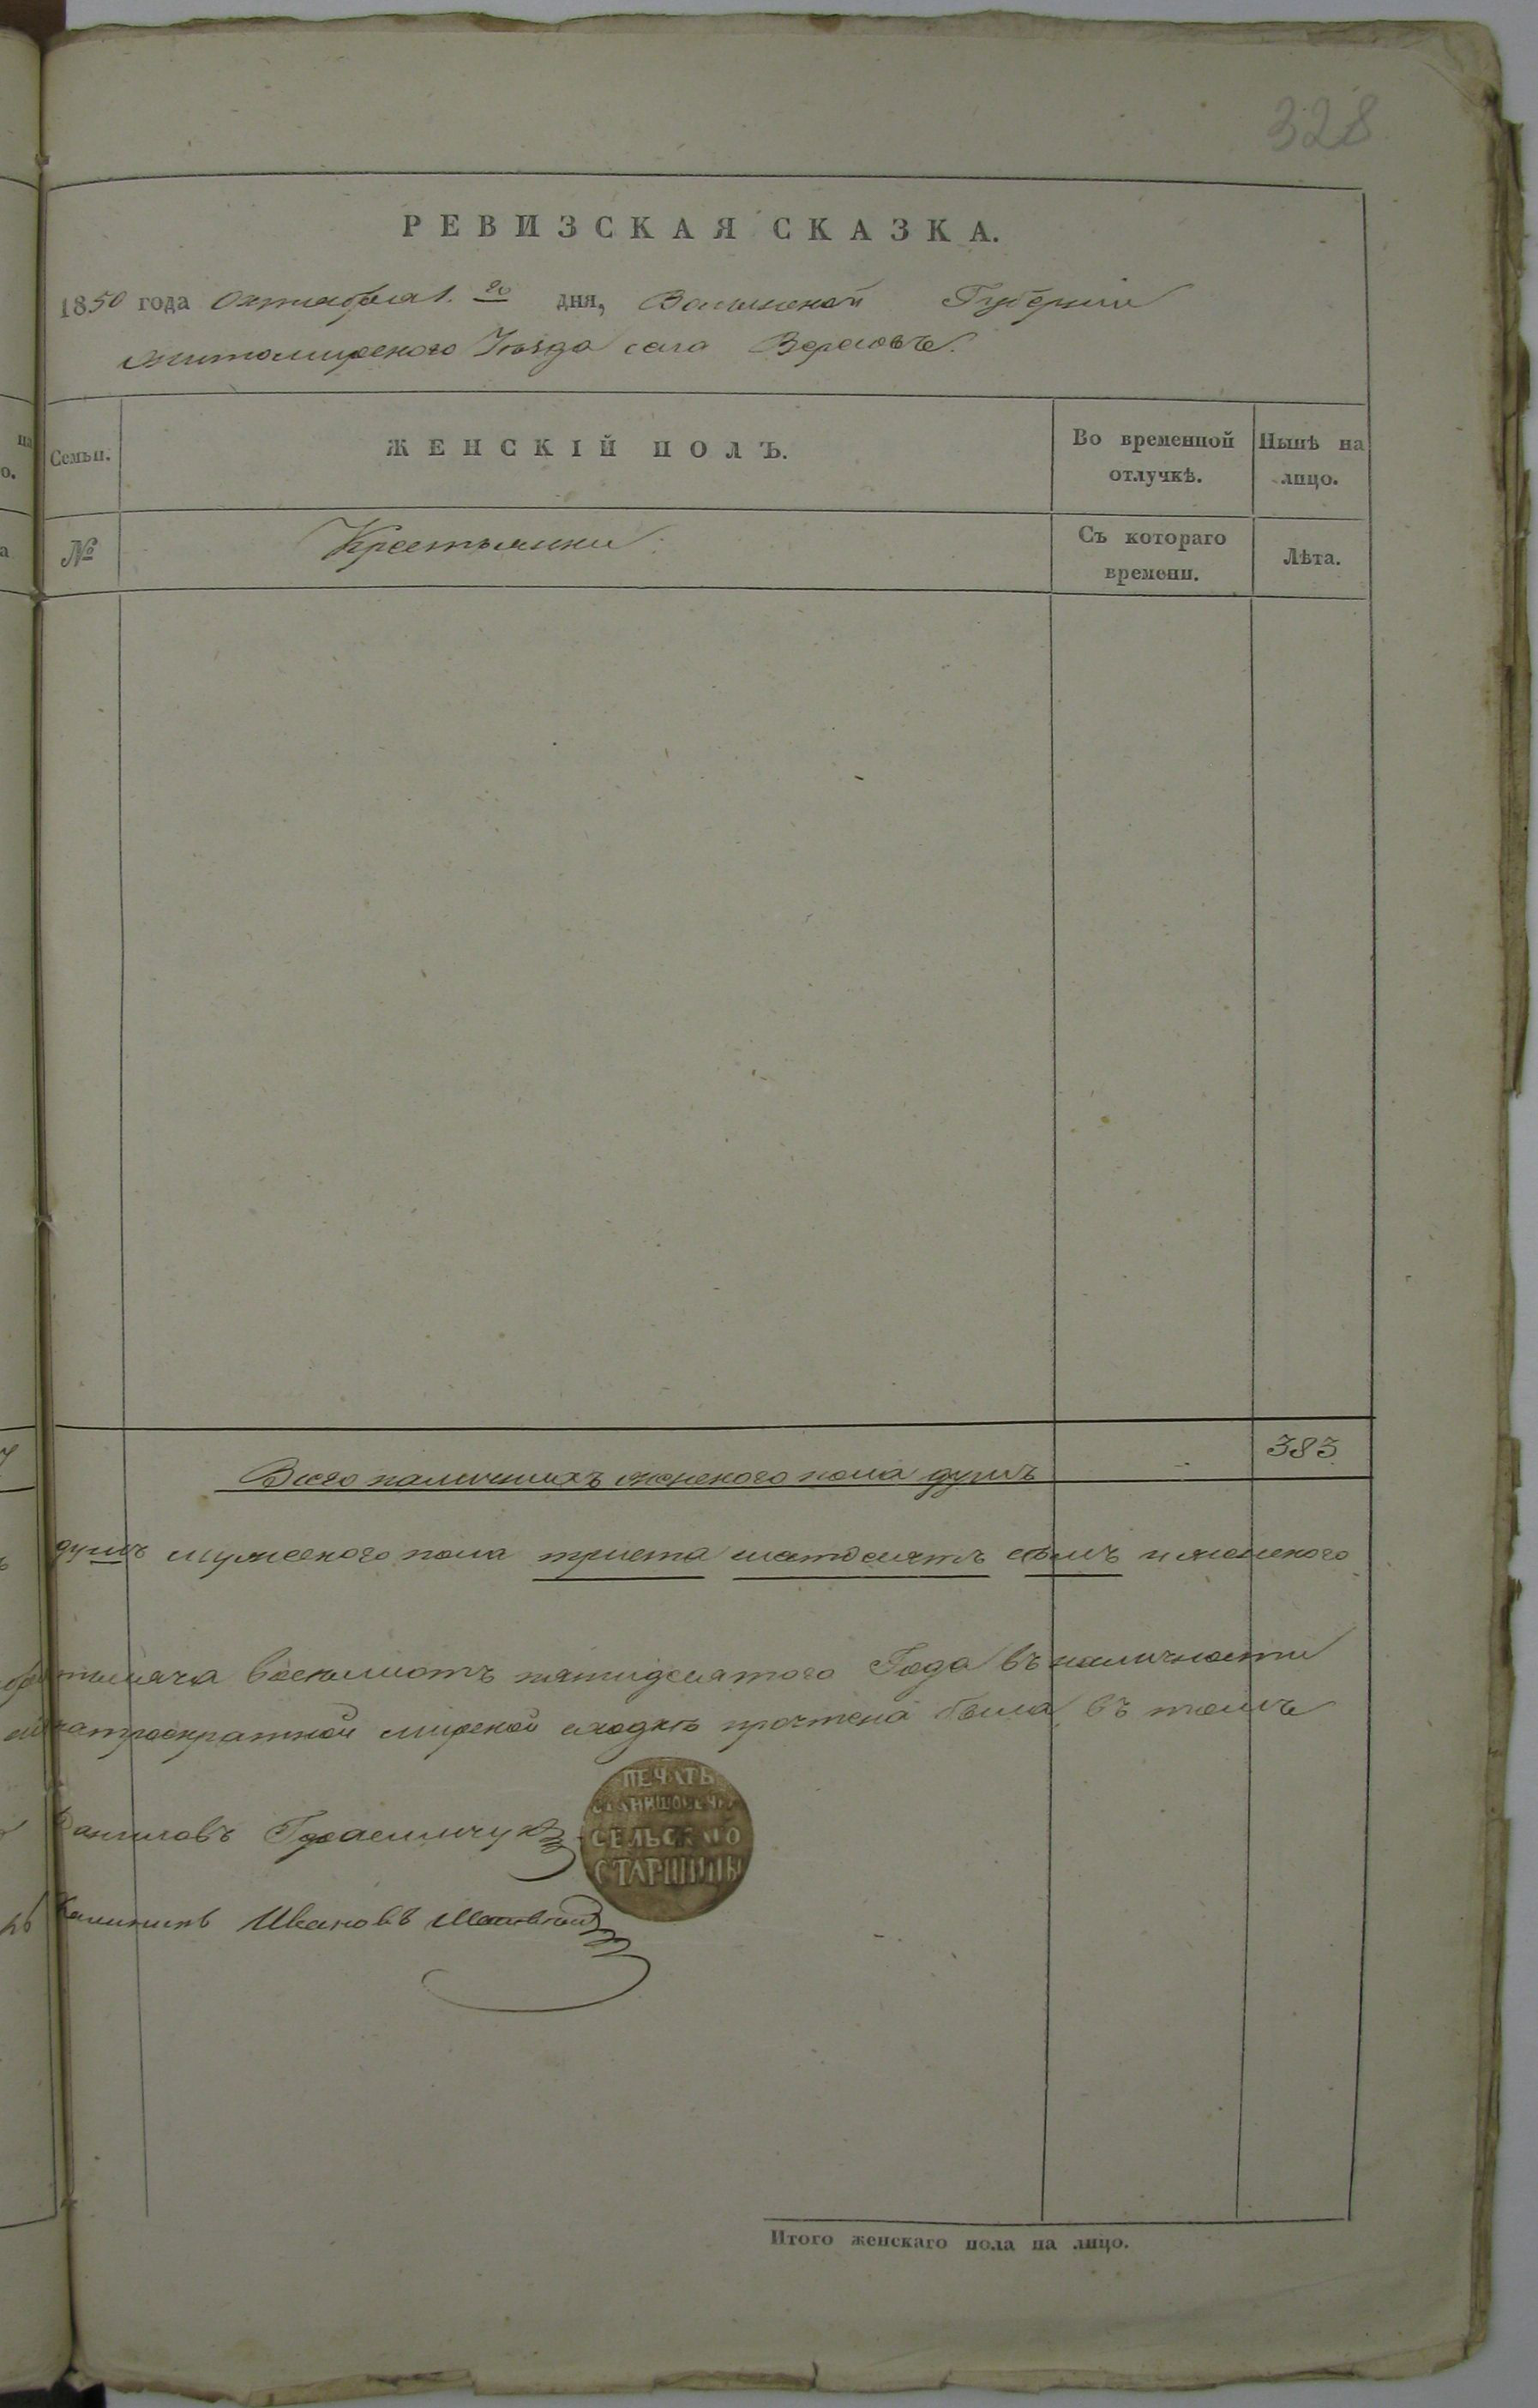 328
РЕВИЗСКАЯ СКАЗКА.
1850 года Октября 1.го дня, Волынской Губернии
Житомирского Уѣзда села Вересовъ.
Семьи.
ЖЕНСКІЙ ПОЛЪ.
Во временной отлучкѣ.
Нынѣ на лицо.
№
Крестьянки
Съ котораго времени.
Лѣта.
Всего наличныхъ женского пола душъ
383
душъ мужеского пола триста семь и женского
тысяча восемьсотъ пятидесятого Года въ наличности
мирской сходкѣ прочтена была въ томъ
Даниловъ
ПЕЧАТЬ
СЕЛЬСКАГО
СТАРШИНЫ
Ивановъ
Итого женскаго пола на лицо.